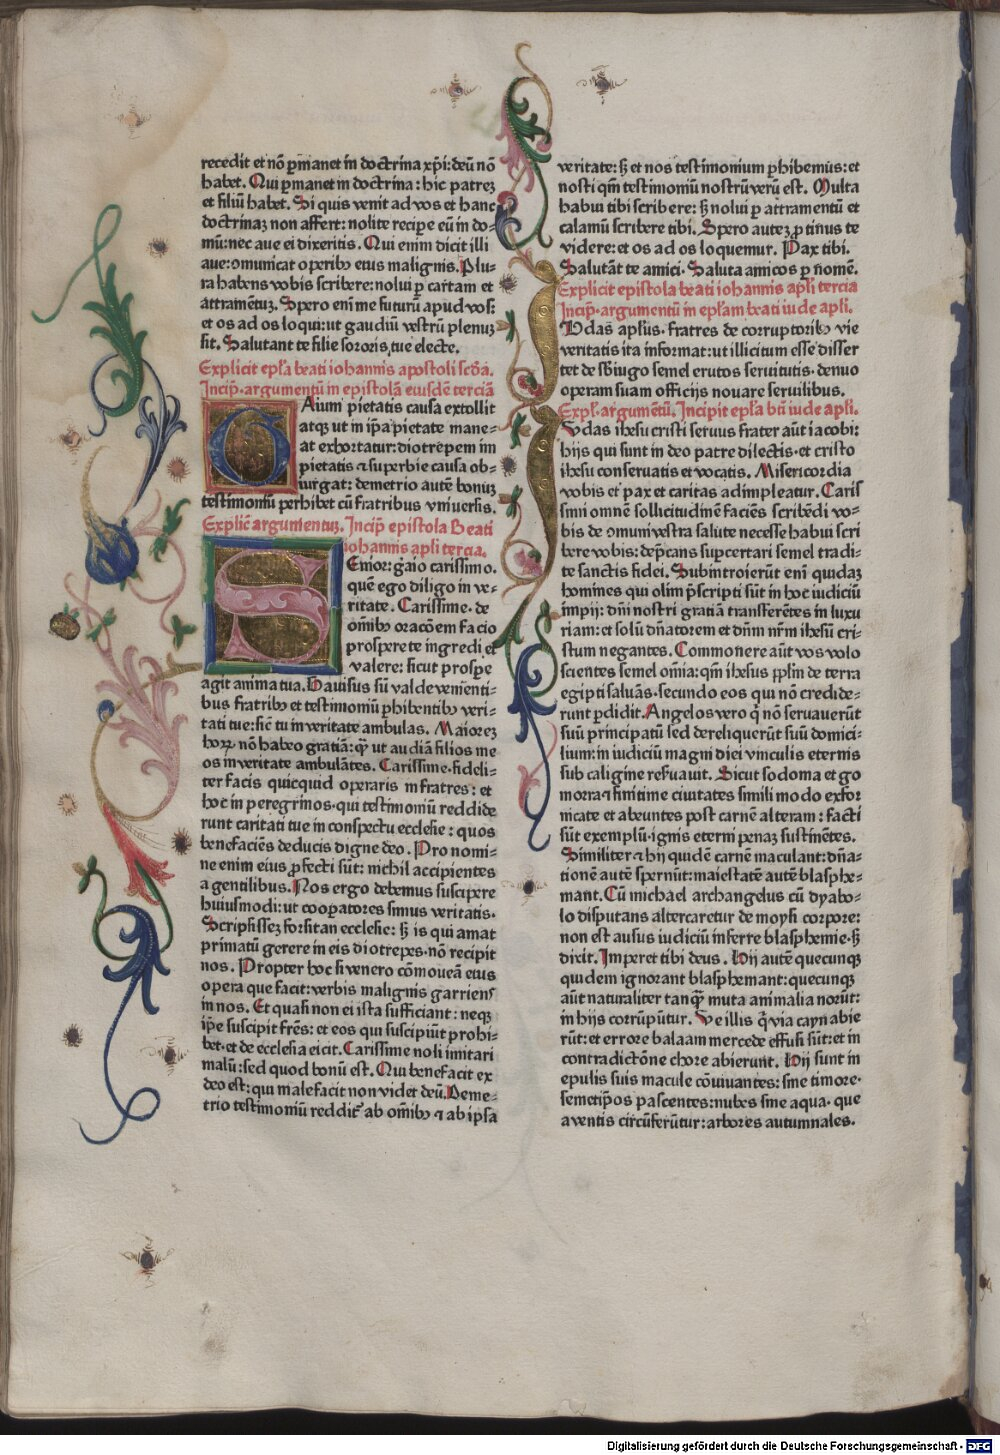 recedit et nō ꝑmanet in doctrina xp̄i: deū nō
habet. Qui ꝑmanet in doctrina: hic patreꝫ
et filiū habet. Si quis venit ad vos et hanc
doctrinaꝫ non affert: nolite recipe eū in do-
mū: nec aue ei dixeritis. Qui enim dicit illi
aue: ꝯmunicat operibꝰ eius malignis. Plu-
ra habens vobis scribere: nolui ꝑ cartam et
attramētuꝫ. Spero enī me futurū apud vos:
et os ad os loqui: ut gaudiū vestrū plenuꝫ
sit. Salutant te filie sororis tue electe.
Explicit epl̄a beati iohannis apostoli scd̄a.
Incip̄. argumentū in epistolā eiusdē terciā
GAium pietatis causa extollit
atqꝫ ut in ip̄a pietate mane-
at exhortatur: diotrepem im
pietatis ⁊ superbie causa ob-
iurgat: demetrio autē bonuꝫ
testimoniū perhibet cū fratribus vniuersis.
Explic̄ argumentuꝫ. Incip̄ epistola Beati
iohannis apl̄i tercia.
SEnior: gaio carissimo.
quē ego diligo in ve-
ritate. Carissime. de
om̄ibꝰ orac̄oēm facio
prospere te ingredi et
valere: sicut prospe
agit anima tua. Gauisus sū valde veniēti-
bus fratribꝰ et testimoniū ꝑhibentibꝰ veri-
tati tue: sic̄ tu in veritate ambulas. Maioreꝫ
hoꝝ nō habeo gratiā: qꝫ ut audiā filios me
os in veritate ambulātes. Carissime. fideli-
ter facis quicquid operaris in fratres: et
hoc in peregrinos. qui testimoniū reddide
runt caritati tue in conspectu ecclesie: quos
benefaciēs deducis digne deo. Pro nomi-
ne enim eius ꝓfecti sūt: nichil accipientes
a gentilibus. Nos ergo debemus suscipere
huiusmodi: ut cooꝑatores simus veritatis.
Scripsisseꝫ forsitan ecclesie: sꝫ is qui amat
primatū gerere in eis diotrepes. nō recipit
nos. Propter hoc si venero cōmoueā eius
opera que facit: verbis malignis garriens
in nos. Et quasi non ei ista sufficiant: neqꝫ
ip̄e suscipit frēs: et eos qui suscipiūt prohi-
bet. et de ecclesia eicit. Carissime noli imitari
malū: sed quod bonū est. Qui benefacit ex
deo est: qui malefacit non videt deū. Deme-
trio testimoniū reddit̄ ab om̄ibꝰ ⁊ ab ipsa
veritate: sꝫ et nos testimonium ꝑhibemus: et
nosti qm̄ testimoniū nostrū verū est. Multa
habui tibi scribere: sꝫ nolui ꝑ attramentū et
calamū scribere tibi. Spero auteꝫ ꝓtinus te
videre: et os ad os loquemur. Pax tibi.
Salutāt te amici. Saluta amicos ꝑ nomē.
Explicit epistola beati iohannis apl̄i tercia
Incip̄. argumentū in epl̄am beati iude apl̄i.
IVdas apl̄us. fratres de corruptoribꝰ vie
veritatis ita informat: ut illicitum esse disser
tet de sb̄iugo semel erutos seruitutis. denuo
operam suam officijs nouare seruilibus.
Expl̄. argumētū. Incipit epl̄a bt̄i iude apl̄i.
IVdas ihesu cristi seruus frater aūt iacobi:
hijs qui sunt in deo patre dilectis. et cristo
ihesu conseruatis et vocatis. Misericordia
vobis et pax et caritas adimpleatur. Caris
simi omnē sollicitudinē faciēs scribēdi vo-
bis de ꝯmuni vestra salute necesse habui scri
bere vobis: dep̄cans suꝑcertari semel tradi-
te sanctis fidei. Subintroierūt enī quidaꝫ
homines qui olim p̄scripti sūt in hoc iudiciū
impij: dn̄i nostri gratiā transferētes in luxu
riam: et solū dn̄atorem et dn̄m nr̄m ihesū cri-
stum negantes. Commonere aūt vos volo
scientes semel om̄ia: qm̄ ihesus pplm̄ de terra
egipti saluās. secundo eos qui nō credide-
runt ꝑdidit. Angelos vero q̄ nō seruauerūt
suū principatū sed dereliquerūt suū domici-
lium: in iudiciū magni diei vinculis eternis
sub caligine res̄uauit. Sicut sodoma et go
morra ⁊ finitime ciuitates simili modo exfor
nicate et abeuntes post carnē alteram: facti
sūt exemplū. ignis eterni penaꝫ sustinētes.
Similiter ⁊ hij quidē carnē maculant: dn̄a-
tionē autē spernūt: maiestatē autē blasphe-
mant. Cū michael archangelus cū dyabo-
lo disputans altercaretur de moysi corpore:
non est ausus iudiciū inferre blasphemie. sꝫ
dixit. Imperet tibi deus. Hij autē quecunqꝫ
quidem ignorant blasphemant: quecunqꝫ
aūt naturaliter tanqꝫ muta animalia norūt:
in hijs corrūpūtur. Ve illis q̄ via cayn abie
rūt: et errore balaam mercede effusi sūt: et in
contradictōne chore abierunt. Hij sunt in
epulis suis macule cōuiuantes: sine timore.
semetip̄os pascentes: nubes sine aqua. que
a ventis circūferūtur: arbores autumnales.
Digitalisierung gefördert durch die Deutsche Forschungsgemeinschaft - DFG